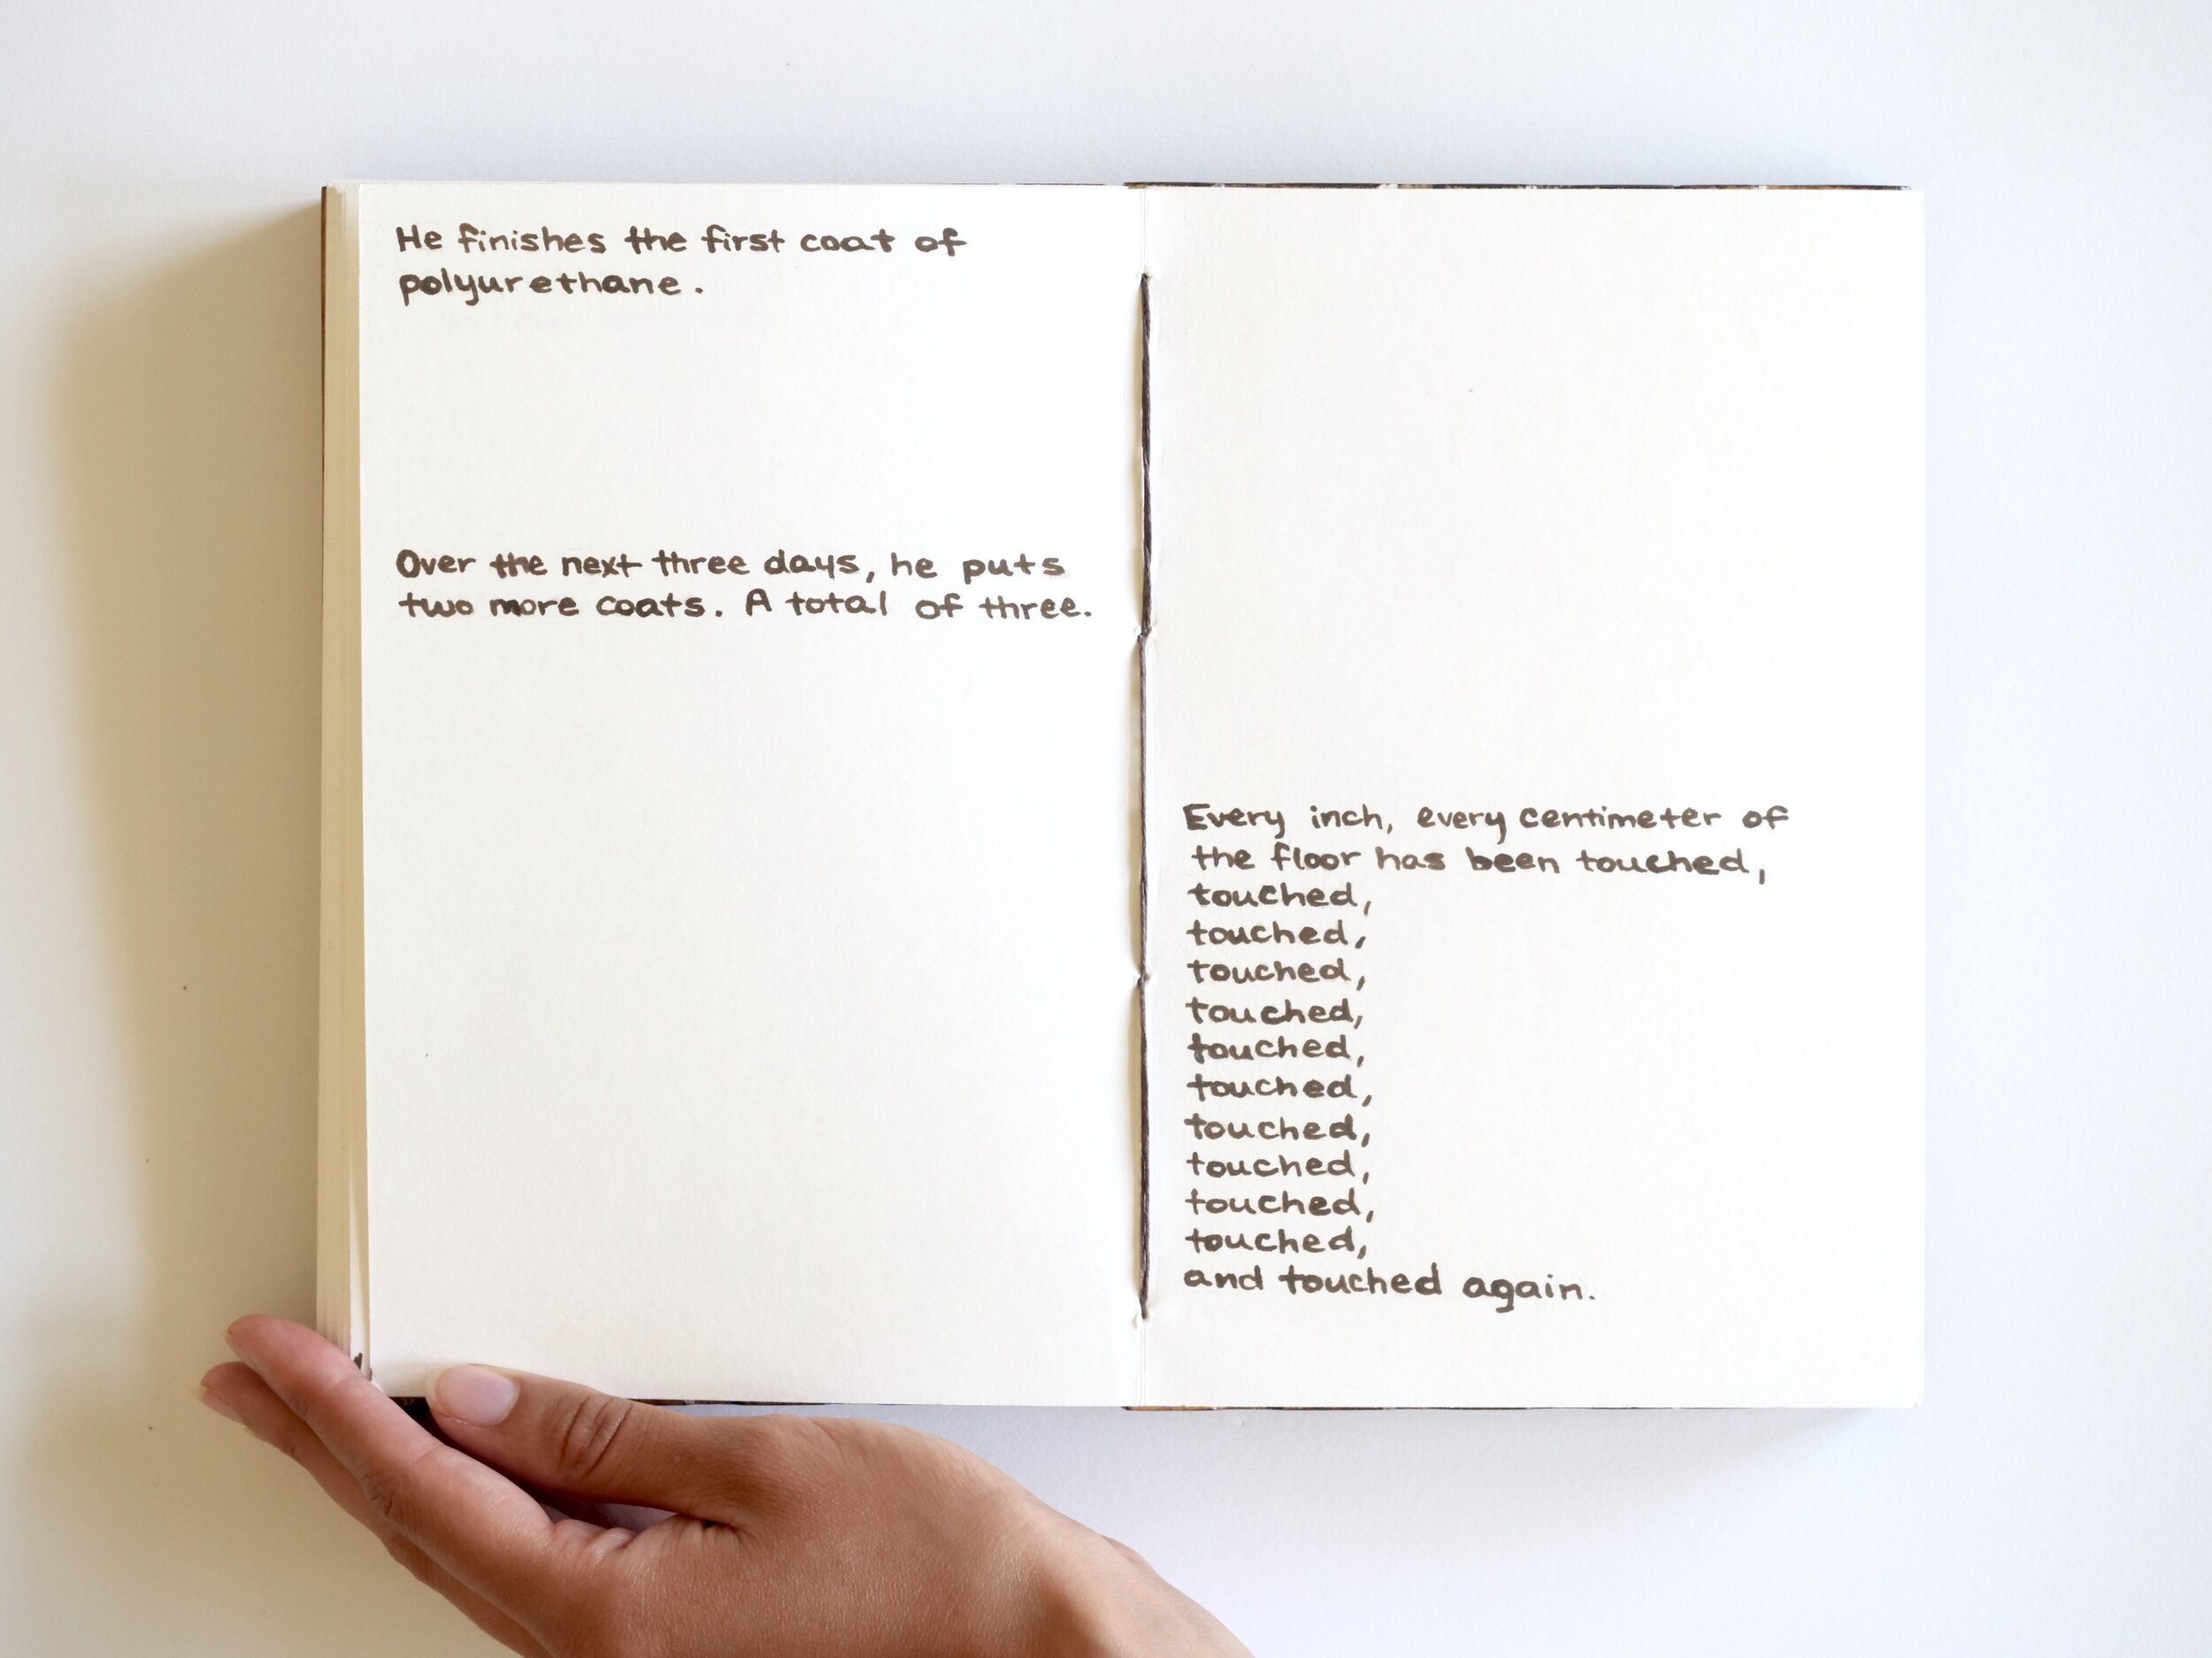 He finishes the first coat of
polyurethane.
Over the next three days, he puts
two more coats. A total of three.
Every inch, every centimeter of
the floor has been touched,
touched,
touched,
touched,
touched,
touched,
touched,
touched,
touched,
touched,
touched,
and touched again.